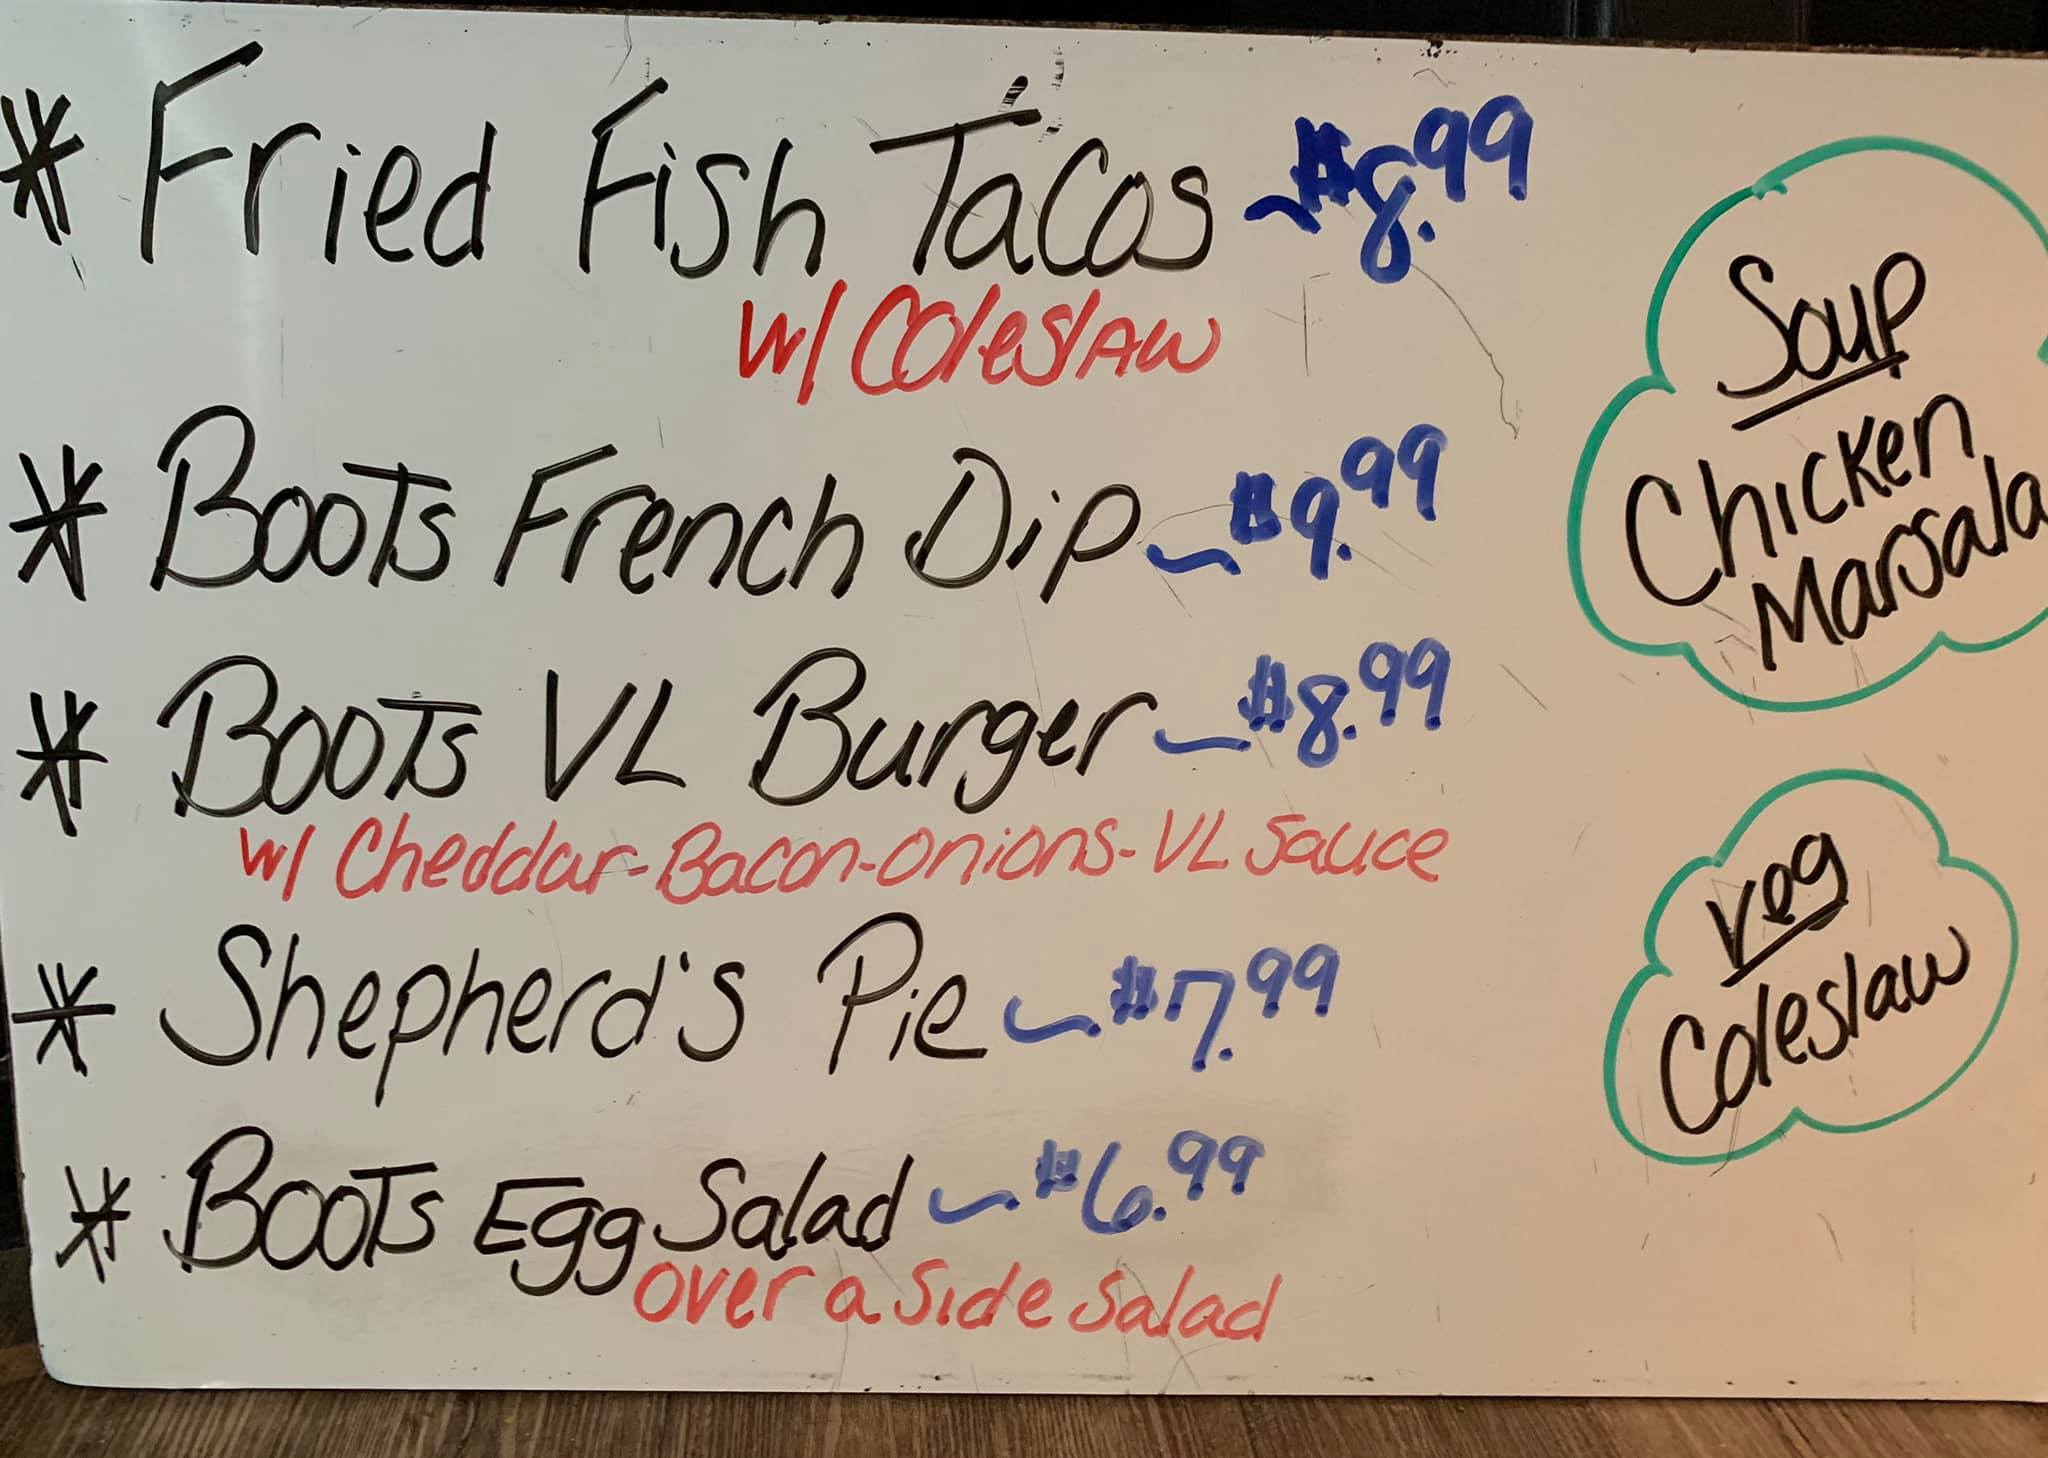 * Fried Fish Tacos ~ $8.99
w/ Coleslaw
* Boots French Dip ~ $9.99
* Boots VL Burger ~ $8.99
w/ Cheddar-Bacon-Onions-VL Sauce
* Shepherd's Pie ~ $7.99
* Boots Egg Salad ~ $6.99
over a side salad
Soup
Chicken
Marsala
Veg
Coleslaw